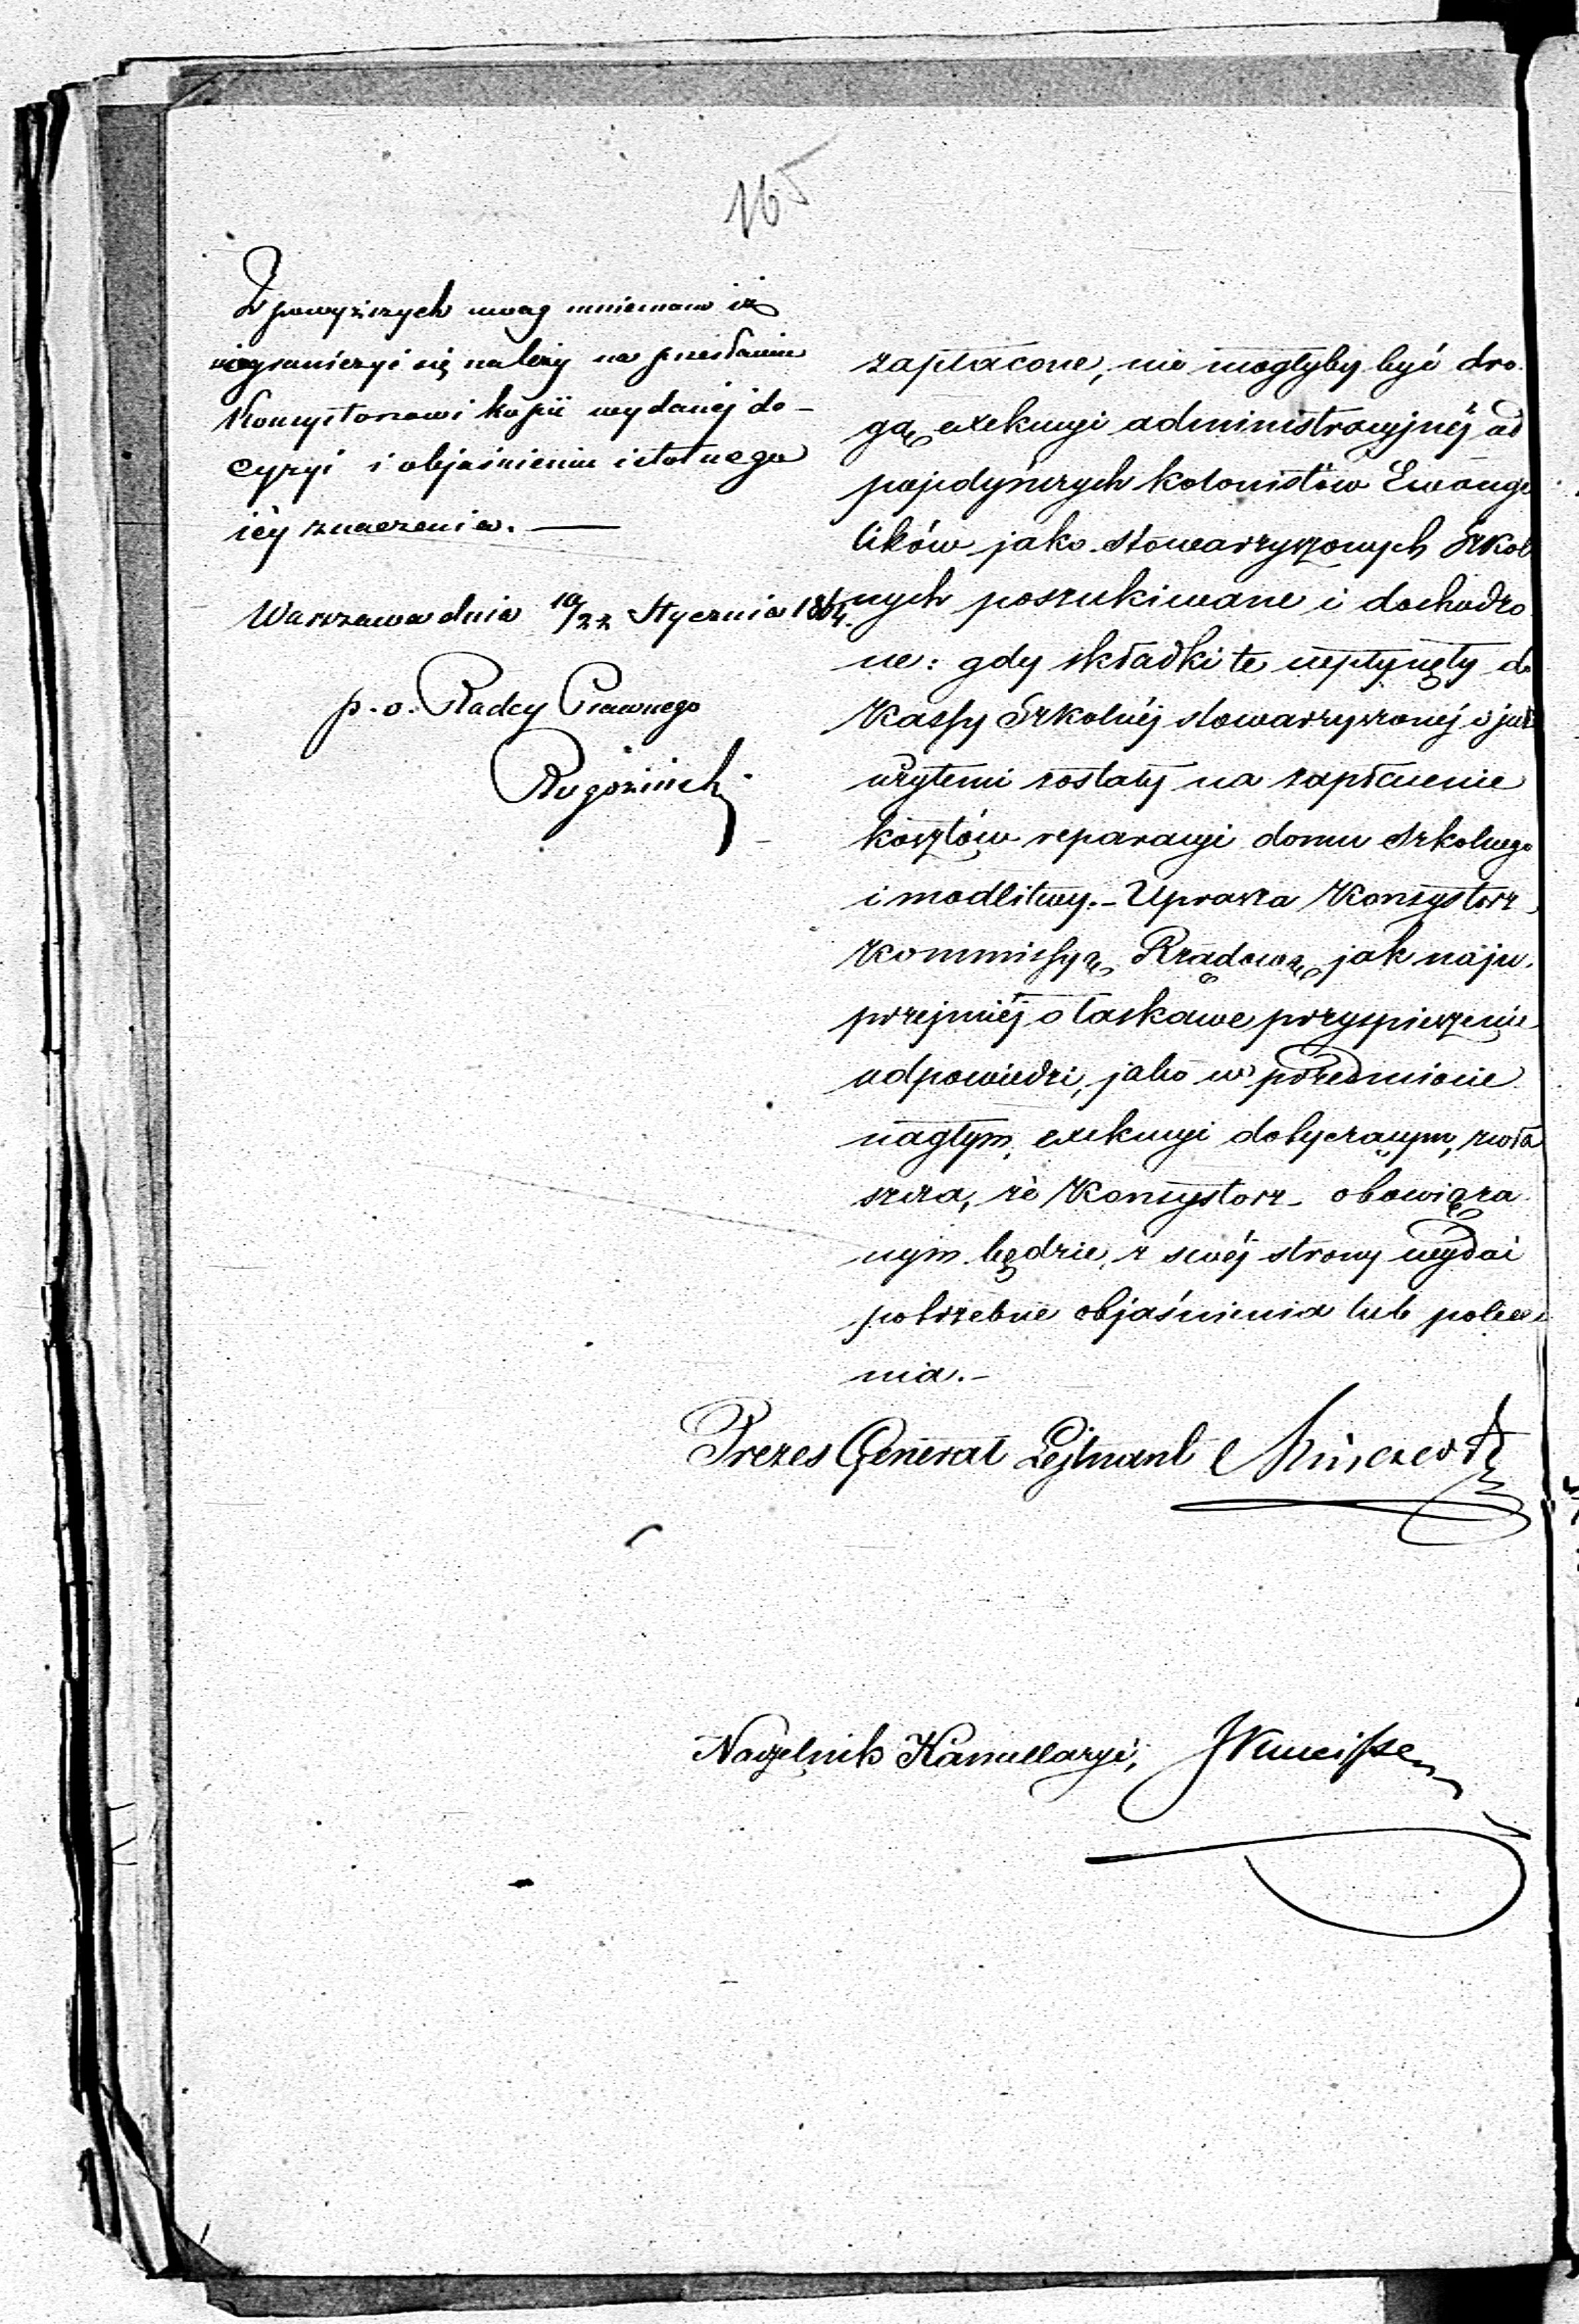 165
Z powyższych uwag mniemam iż
ograniczyć się należy na przesłaniu
Konsystorzowi kopii wydanej de-
cyzyi i objaśnieniu istotnego
iéy znaczenia. —
Warszawa dnia 10/22 Stycznia 1864.
p. o. Radcy Prawnego
zapłacone, nie mogłyby być dro-
gą exekucyi administracyjnéj od
pojedyńczych kolonistów Ewange
lików jako stowarzyszonych Szkol
nych poszukiwane i dochodzo
ne: gdy składki te wpłynęły do
Kassy Szkolnéj stowarzyszonéj i już
użytemi zostały na zapłacenie
kosztów reparacyi domu Szkolnego
i modlitwy. – Uprasza Konsystorz
Kommissyą Rządową jak naju-
przejmiéj o łaskawe przyspieszenie
odpowiedzi, jako w przedmiocie
nagłym, exekucyi dotyczącym, zwła
szcza, że Konsystorz obowiąza
nym będzie, z swéj strony wydać
potrzebne objaśnienia lub polece
nia. –
Prezes Generał Lejtnant
Naczelnik Kancellaryi,